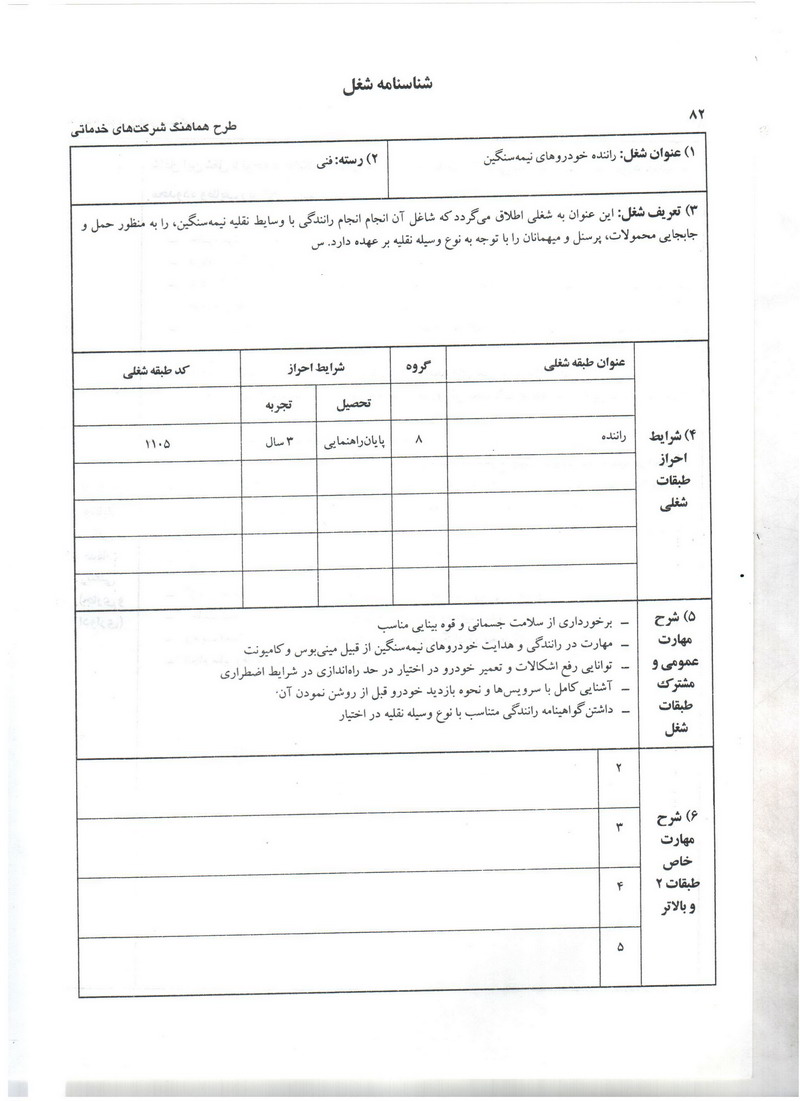 شناسنامه شغل
۸۲
طرح هماهنگ شرکت‌های خدماتی
۱) عنوان شغل: راننده خودروهای نیمه‌سنگین
۲) رسته: فنی
۳) تعریف شغل: این عنوان به شغلی اطلاق می‌گردد که شاغل آن انجام انجام رانندگی با وسایط نقلیه نیمه‌سنگین، را به منظور حمل و
جابجایی محمولات، پرسنل و میهمانان را با توجه به نوع وسیله نقلیه بر عهده دارد. س
۴) شرایط
احراز
طبقات
شغلی
عنوان طبقه شغلی
گروه
شرایط احراز
کد طبقه شغلی
تحصیل
تجربه
راننده
۸
پایان‌راهنمایی
۳ سال
۱۱۰۵
۵) شرح
مهارت
عمومی و
مشترک
طبقات
شغل
– برخورداری از سلامت جسمانی و قوه بینایی مناسب
– مهارت در رانندگی و هدایت خودروهای نیمه‌سنگین از قبیل مینی‌بوس و کامیونت
– توانایی رفع اشکالات و تعمیر خودرو در اختیار در حد راه‌اندازی در شرایط اضطراری
– آشنایی کامل با سرویس‌ها و نحوه بازدید خودرو قبل از روشن نمودن آن.
– داشتن گواهینامه رانندگی متناسب با نوع وسیله نقلیه در اختیار
۶) شرح
مهارت
خاص
طبقات ۲
و بالاتر
۲
۳
۴
۵